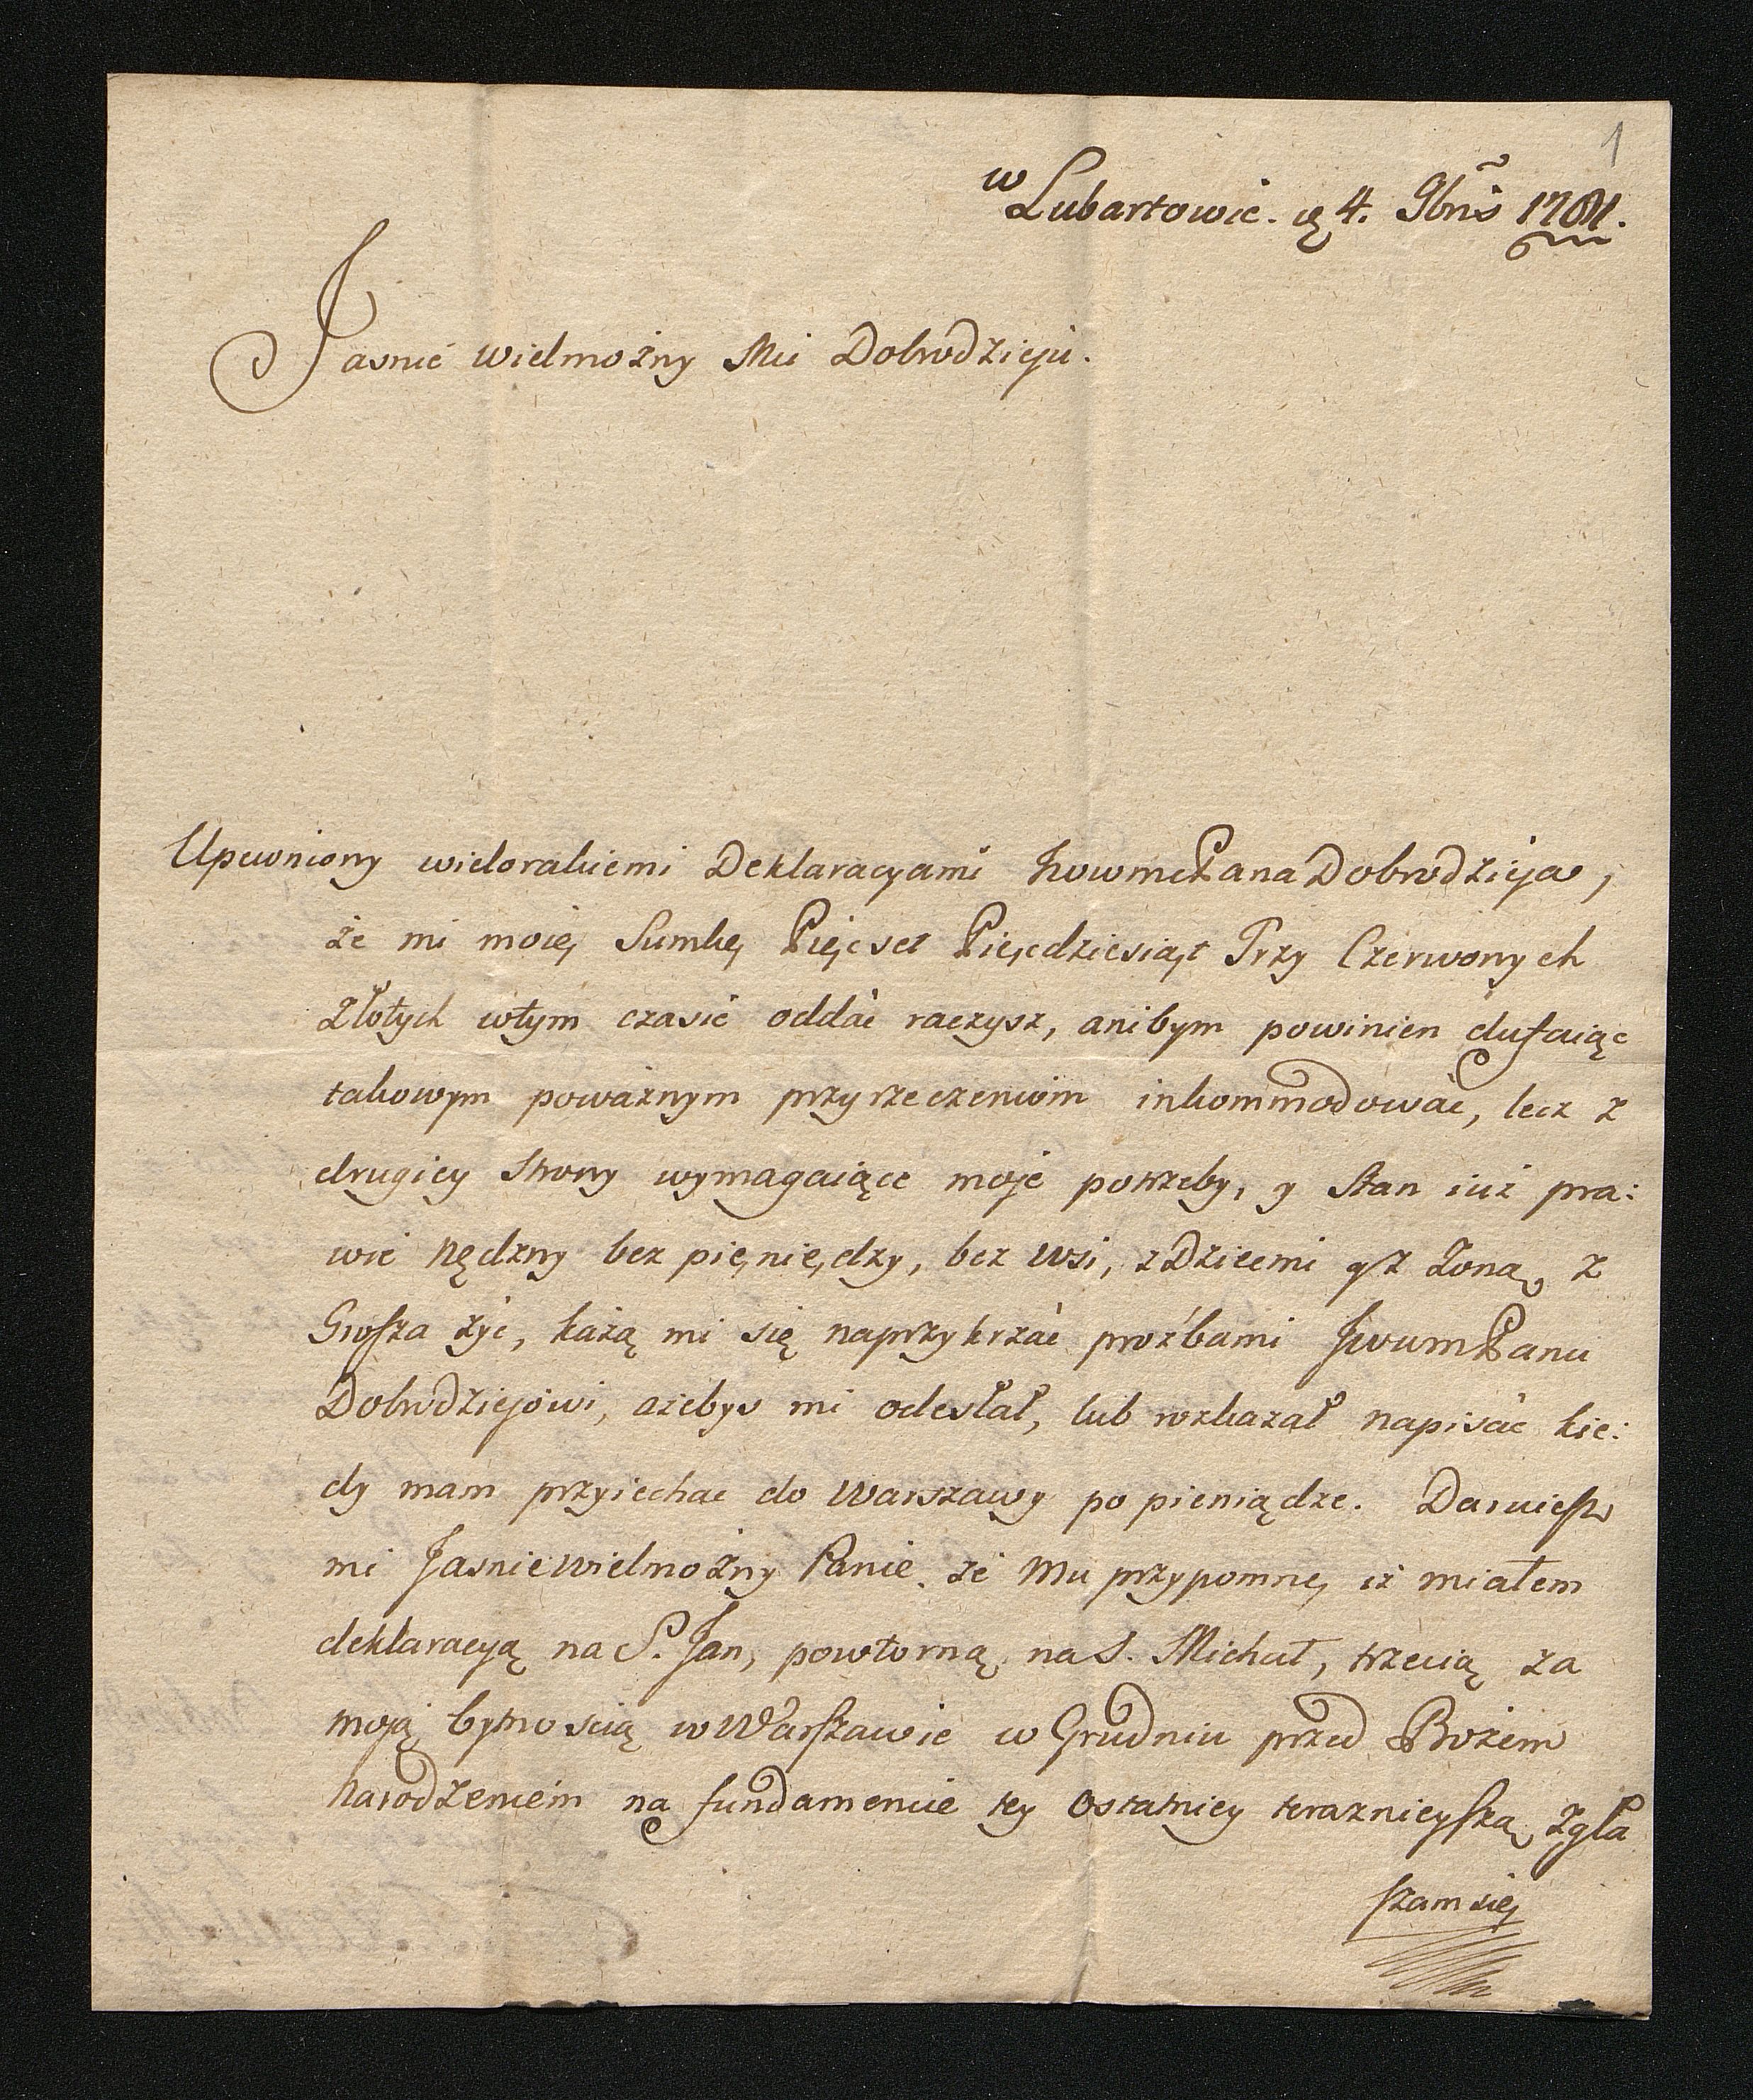 1
w Lubartowie. 4. 9bris 1781.
Jasnie Wielmożny Mci Dobrodzieju.
Upewniony wielorakiemi Deklaracyami JwwmcPana Dobrodzieja,
że mi moię Sumkę Pięcset Pięcdziesiąt Trzy Czerwonych
Złotych wtym czasie oddać raczysz, anibym powinien dufaiąc
takowym poważnym przyrzeczeniom inkommodować, lecz z
drugiey strony wymagaiące moje potrzeby, y Stan iuż pra:
wie nędzny bez pięniędzy, bez wsi, z Dziećmi y z Żoną, z
Grosza żyć, każą mi się naprzykrzać prożbami JwwmPanu
Dobrodziejowi, ażebys mi odesłał, lub rozkazał napisać kie:
dy mam przyiechac do Warszawy po pieniądze. Daruiesz
mi Jasnie Wielmożny Panie że Mu przypomnę, iż miałem
deklaracyą na S. Jan, powtorną na S. Michał, trzecią za
moją bytnoscią w Warszawie w Grudniu przed Bożem
Narodzeniem na fundamencie tey ostatniey teraznieyszą zgła
szam się